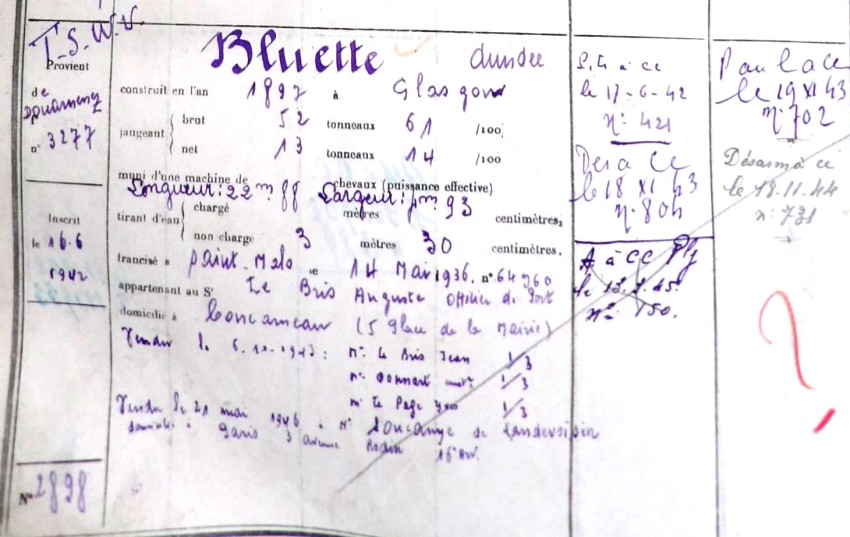 T.S.W.V.
Provient
de
Douarnenez
n° 3277
Inscrit
le 16-6
1942
N° 2898
Bluette dundee
construit en l'an 1897 à Glasgow
jaugeant brut 52 tonneaux 61 /100
net 13 tonneaux 14 /100
muni d'une machine de chevaux (puissance effective)
Longueur: 22m 88 Largeur: 93
tirant d'eau chargé mètres centimètres,
non chargé 3 mètres 30 centimètres.
francisé à Saint-Malo le 14 Mai 1936, n° 64960
appartenant au Sr Le Bris Auguste Officier de Port
domicilié à Concarneau (5 Place de la Mairie)
Vendu le 6.10-1943: Mr Le Bris Jean 1/3
Mr Donnart 1/3
Mr Le Page Yves 1/3
Vendu le 21 mai 1946 à Mr de Landevoisin
domicilié à Paris 3 avenue Rodin 16e Arr.
à CC
le 17-6-42
n: 421
Des à CC
le 18 XI 43
n: 804
A à CC
le 15.
n: 150.
P
le 19 XI 43
n: 702
Désarmé à CC
le 18.11.44
n: 731
?